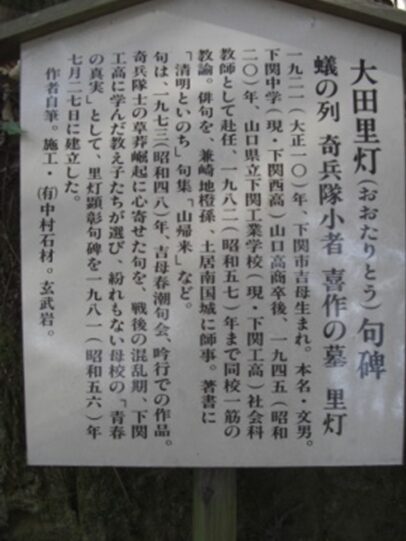 大田里灯(おおたりとう)句碑
蟻の列 奇兵隊小者 喜作の墓 里灯
一九二一(大正一〇)年、下関市吉母生まれ。本名・文男。
下関中学(現・下関西高)山口高商卒後、一九四五(昭和
二〇)年、山口県立下関工業学校(現・下関工高)社会科
教師として赴任、一九八二(昭和五七)年まで同校一筋の
教諭。俳句を、兼崎地橙孫、土居南国城に師事。著書に
「清明といのち」句集「山帰来」など。
句は、一九七三(昭和四八)年、吉母春潮句会、吟行での作品。
奇兵隊士の草莽崛起に心寄せた句を、戦後の混乱期、下関
工高に学んだ教え子たちが選び、紛れもない母校の「青春
の真実」として、里灯顕彰句碑を一九八一(昭和五六)年
七月二七日に建立した。
作者自筆。施工・(有)中村石材。玄武岩。